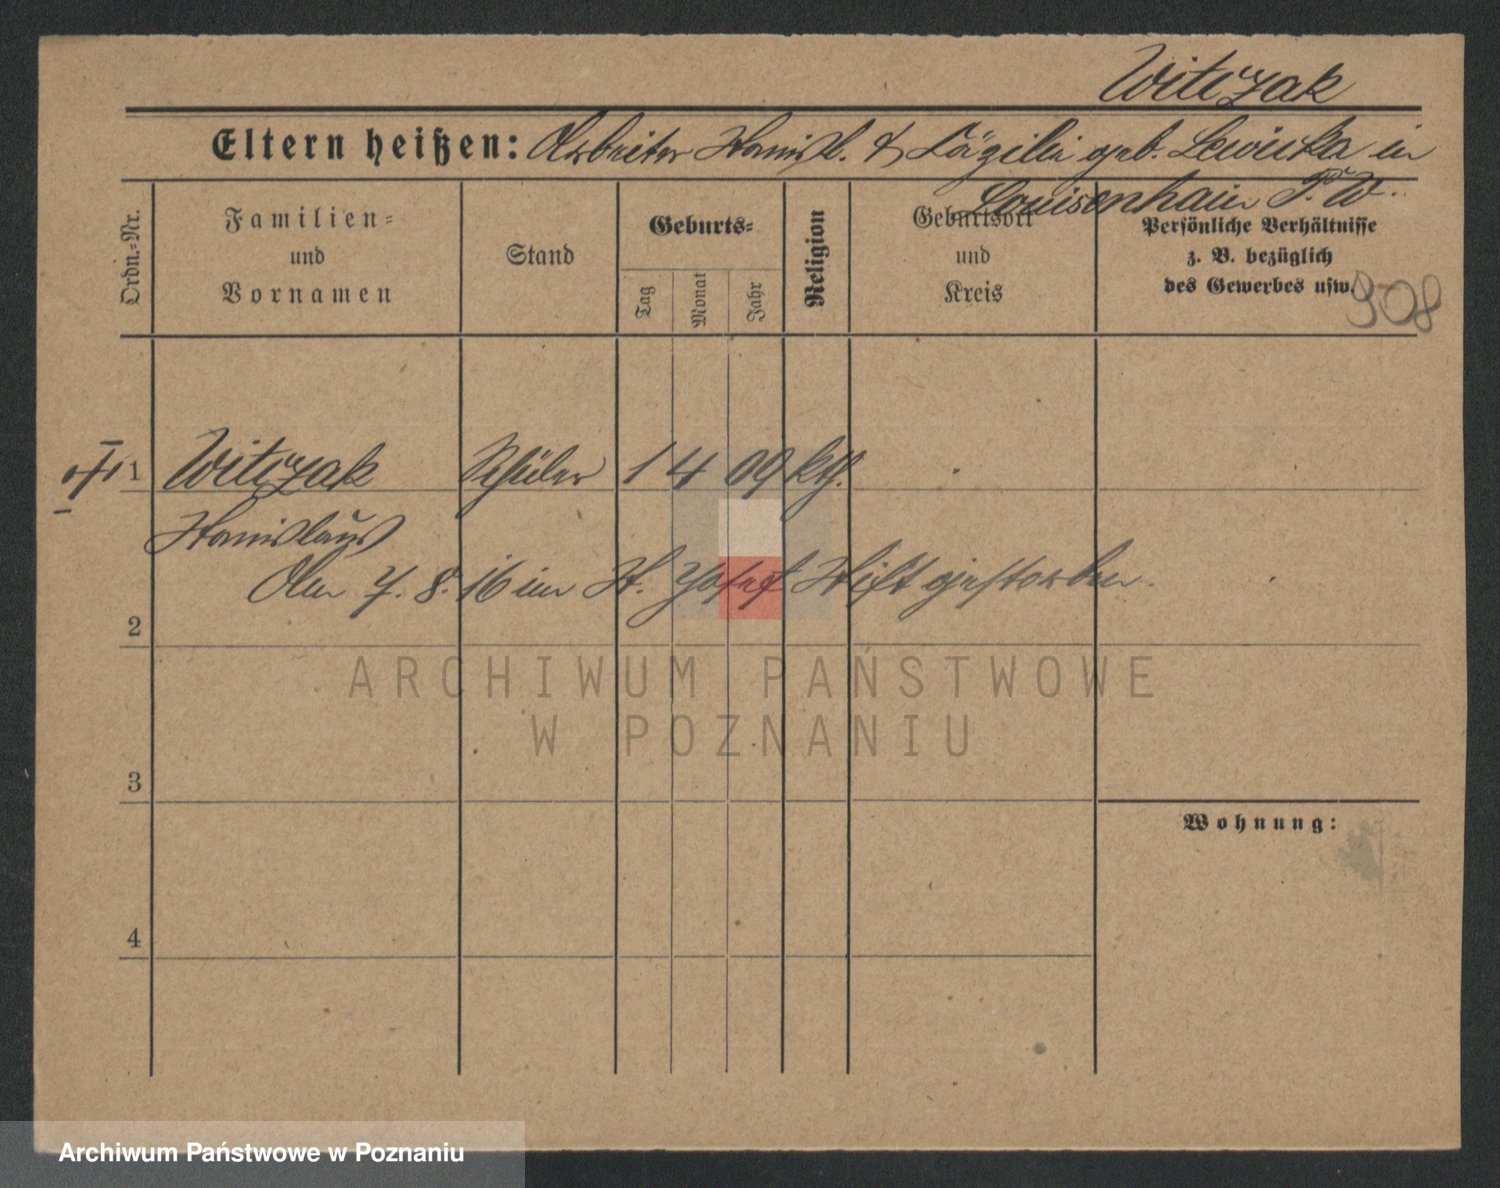 Witczak
Eltern heißen: Arbeiter Stanisl. & Cäzilie geb. Lewicka in
Louisenhain P. W.
Ordn.=Nr.
Familien=
und
Vornamen
Stand
Geburts=
Tag
Monat
Jahr
Religion
Geburtsort
und
Kreis
Persönliche Verhältnisse
z. B. bezüglich
des Gewerbes usw.
908
1 Witczak Schüler 1 4 09 kth.
Stanislaus
Am 7. 8. 16 im St. Josef Stift gestorben.
2
ARCHIWUM PAŃSTWOWE
W POZNANIU
3
Wohnung:
4
Archiwum Państwowe w Poznaniu